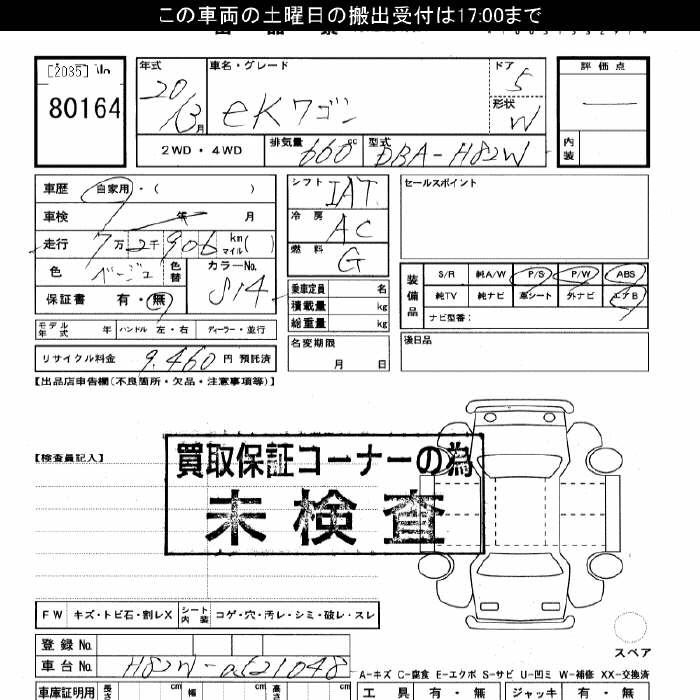 この車両の土曜日の搬出受付は17:00まで
[2035]
80164
年式 20 13月
車名・グレード eKワゴン
ドア 5
形状 W
評価点
内装
2WD・4WD
排気量 660cc
型式 DBA-H82W
車歴 自家用・( )
車検 年 月
走行 7万2千906 km マイル( )
色 ベージュ 色替 カラーNo. S14
保証書 有・無
シフト IAT
冷房 AC
燃料 G
乗車定員 名
積載量 kg
総重量 kg
名変期限 月 日
セールスポイント
装備品
S/R 純A/W P/S P/W ABS
純TV 純ナビ 革シート 外ナビ エアB
ナビ型番:
後日品
モデル年式 年 ハンドル 左・右 ディーラー・並行
リサイクル料金 9,460 円 預託済
【出品店申告欄(不良箇所・欠品・注意事項等)】
【検査員記入】
買取保証コーナーの為
未検査
FW キズ・トビ石・割レX シート内装 コゲ・穴・汚レ・シミ・破レ・スレ
スペア
登録No.
車台No. H82W-
A-キズ C-腐食 E-エクボ S-サビ U-凹ミ W-補修 XX-交換済
車庫証明用 長さ cm 幅 cm cm
工具 有・無 ジャッキ 有・無